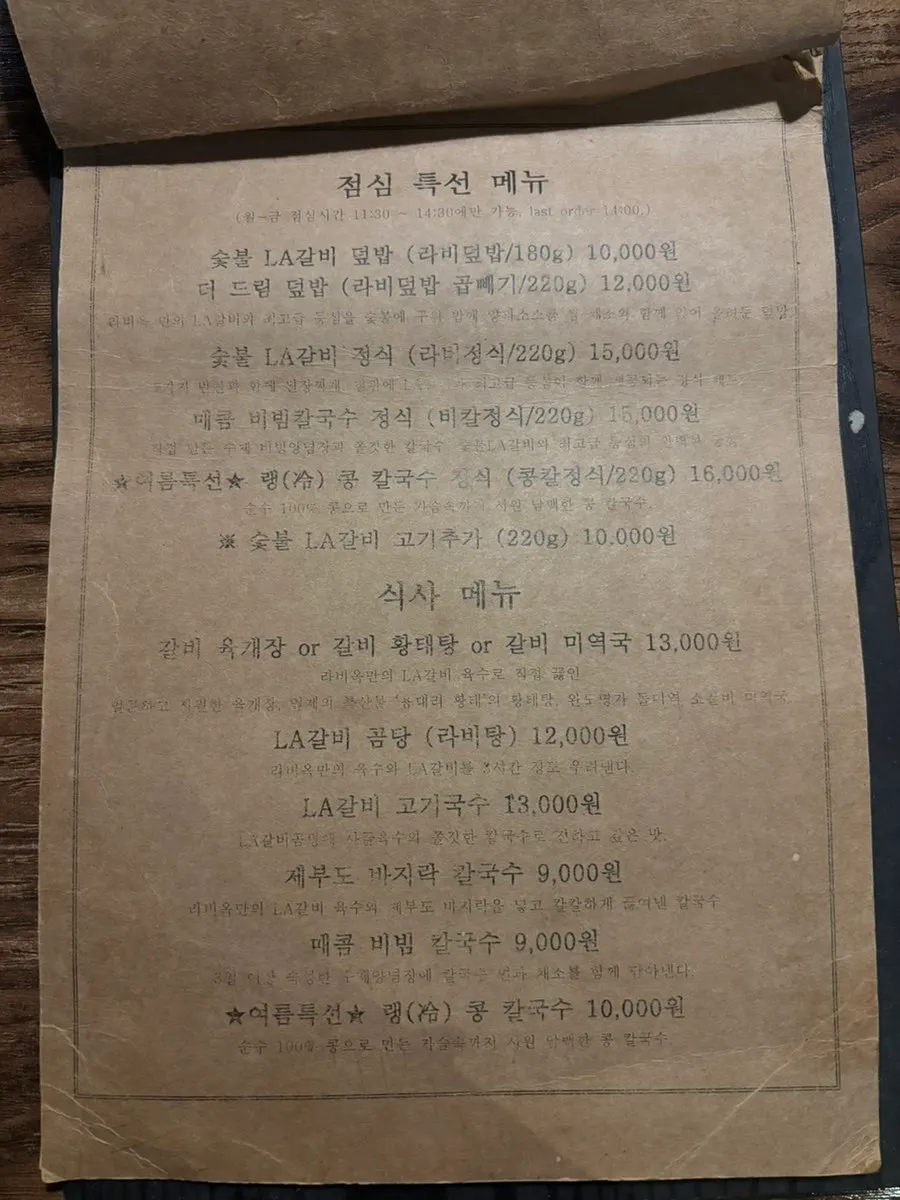 점심 특선 메뉴
(월-금 점심시간 11:30 ~ 14:30에만 가능, last order 14:00.)
숯불 LA갈비 덮밥 (라비덮밥/180g) 10,000원
더 드림 덮밥 (라비덮밥 곱빼기/220g) 12,000원
라비옥 만의 LA갈비와 최고급 등심을 숯불에 구워 밥에 함께 덮밥
숯불 LA갈비 정식 (라비정식/220g) 15,000원
함께 된장찌개, 최고급 등심이 함께 제공되는 정식
매콤 비빔칼국수 정식 (비칼정식/220g) 15,000원
직접 만든 수제 비빔양념장과 쫄깃한 칼국수, 숯불LA갈비와 최고급 등심의
★여름특선★ 랭(冷) 콩 칼국수 정식 (콩칼정식/220g) 16,000원
순수 100% 콩으로 만든 가슴속까지 시원 담백한 콩 칼국수.
※ 숯불 LA갈비 고기추가 (220g) 10.000원
식사 메뉴
갈비 육개장 or 갈비 황태탕 or 갈비 미역국 13,000원
라비옥만의 LA갈비 육수로 직접 끓인
얼큰하고 시원한 육개장, 인제의 특산물 '용대리 황태'의 황태탕, 완도명가 돌미역 소갈비 미역국
LA갈비 곰탕 (라비탕) 12,000원
라비옥만의 육수와 LA갈비를 우려낸다.
LA갈비 고기국수 13,000원
사골육수와 쫄깃한 칼국수로 진하고 깊은 맛.
제부도 바지락 칼국수 9,000원
라비옥만의 LA갈비 육수와 제부도 바지락을 넣고 칼칼하게 끓여낸 칼국수
매콤 비빔 칼국수 9,000원
3일 이상 숙성한 수제양념장에 칼국수 면과 채소를 함께 담아낸다.
★여름특선★ 랭(冷) 콩 칼국수 10,000원
순수 100% 콩으로 만든 가슴속까지 시원 담백한 콩 칼국수.